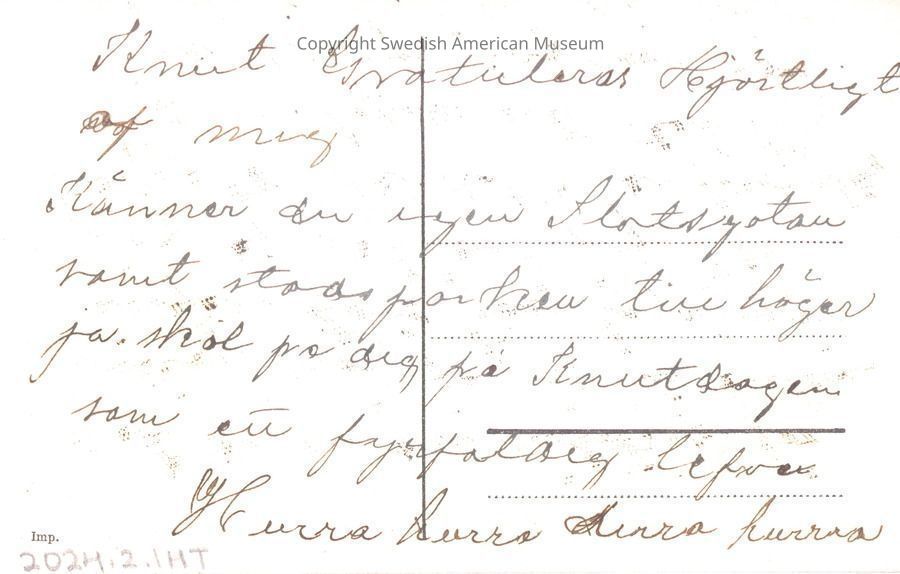 Copyright Swedish American Museum
Knut Gratuleras Hjärtligt
af mig
Känner du igen Slotsgotan
samt stadsparken till höger
ja skål på dig på Knutdagen
som ett fyrfaldig lefve
Hurra hurra Hurra hurra
Imp.
2024.2.1HT